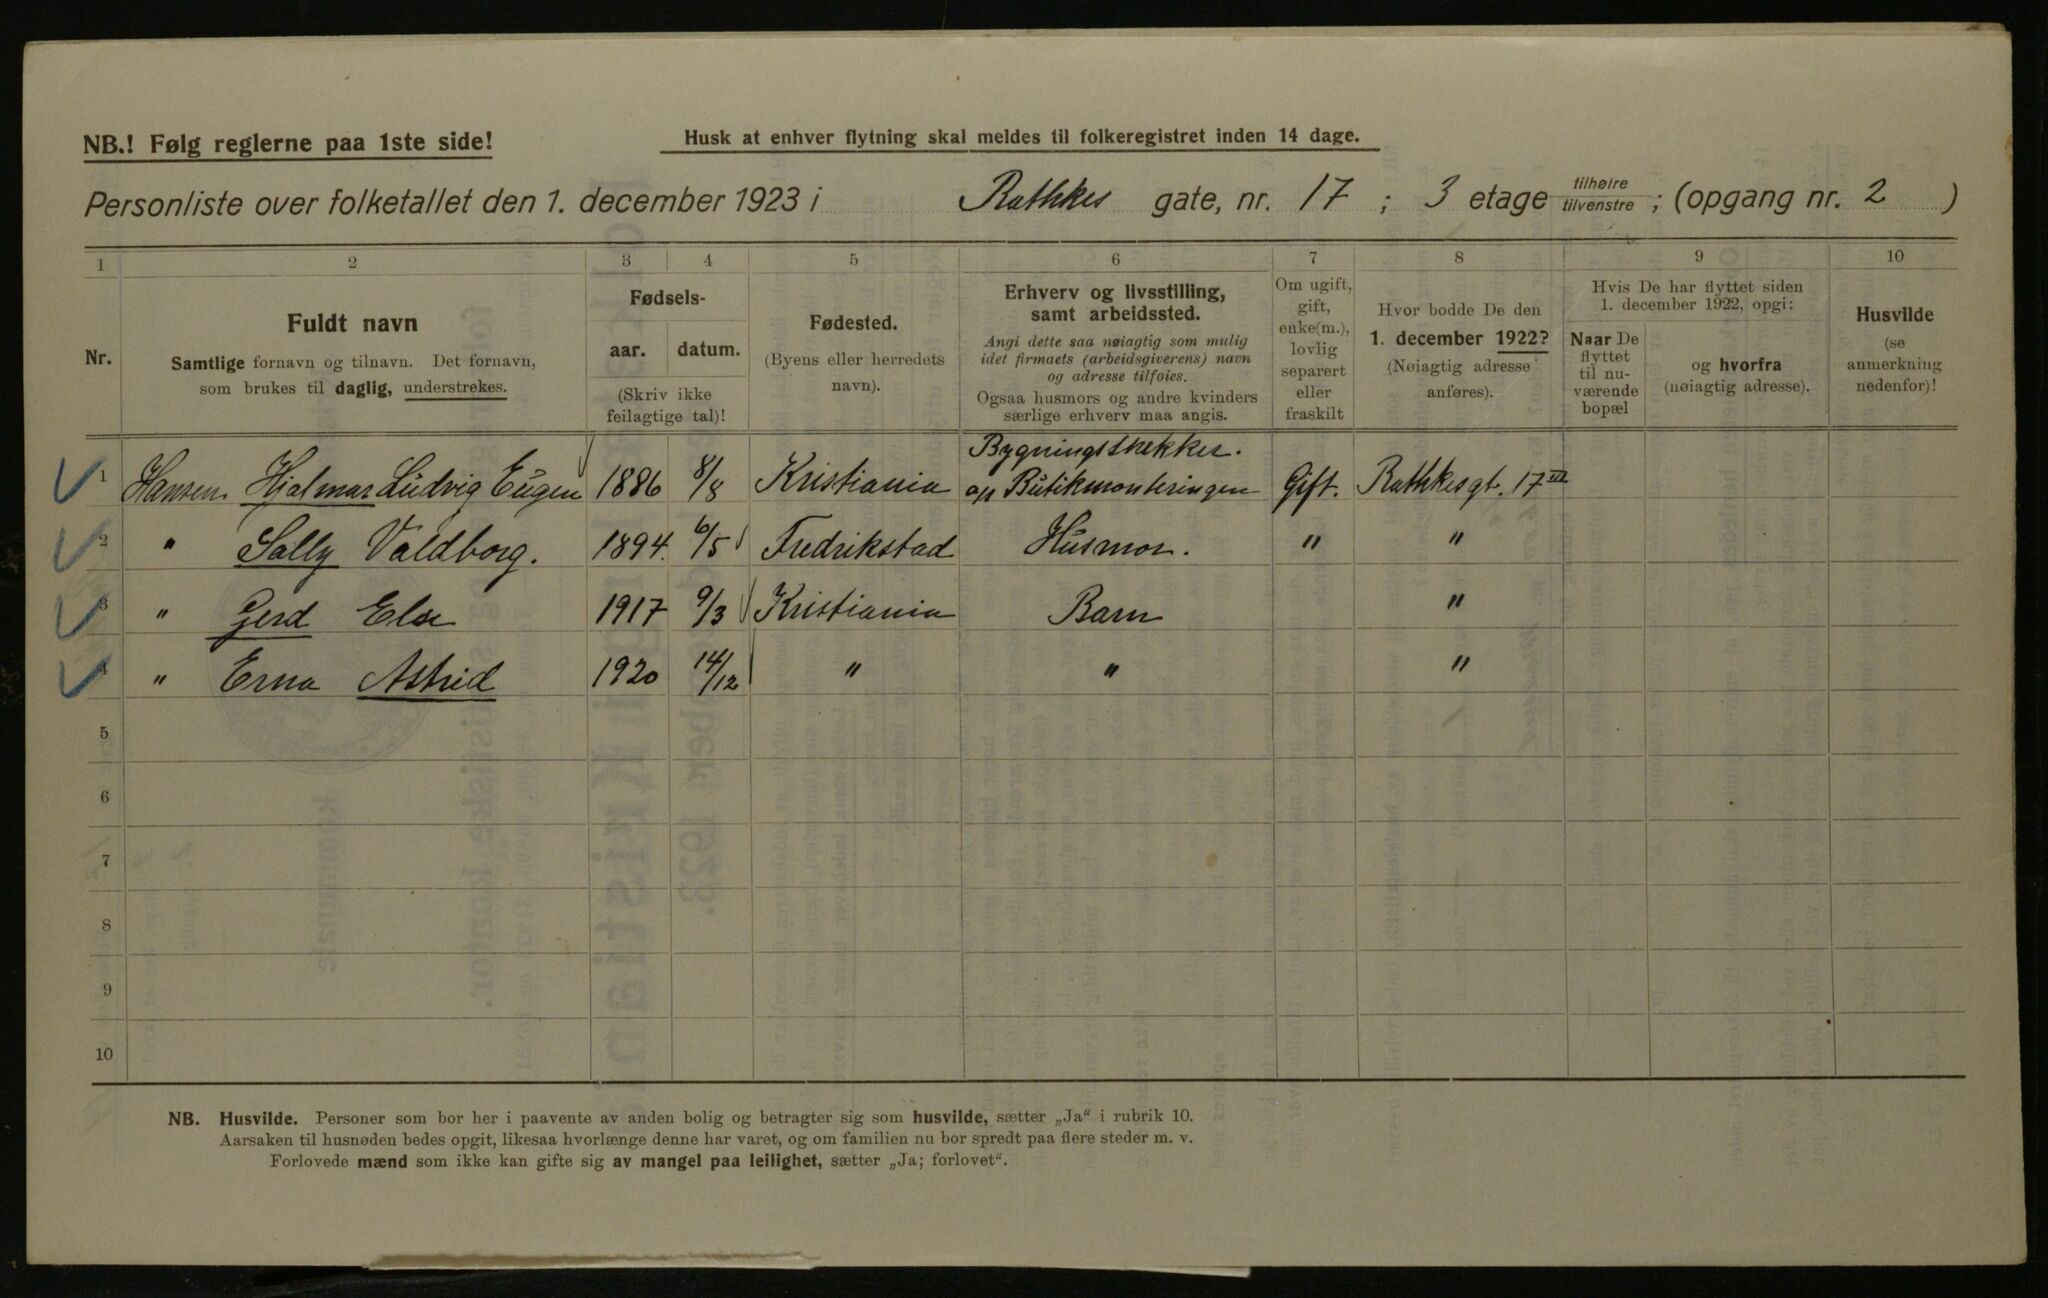 NB.! Følg reglerne paa 1ste side!
Husk at enhver flytning skal meldes til folkeregistret inden 14 dage.
Personliste over folketallet den 1. december 1923 i Rathkes gate, nr. 17 ; 3 etage tilhøire tilvenstre ; (opgang nr. 2 )
1 2 3 4 5 6 7 8 9 10
Nr.
Fuldt navn
Samtlige fornavn og tilnavn. Det fornavn,
som brukes til daglig, understrekes.
Fødsels-
aar. datum.
(Skriv ikke
feilagtige tal)!
Fødested.
(Byens eller herredets
navn).
Erhverv og livsstilling,
samt arbeidssted.
Angi dette saa nøiagtig som mulig
idet firmaets (arbeidsgiverens) navn
og adresse tilføies.
Ogsaa husmors og andre kvinders
særlige erhverv maa angis.
Om ugift,
gift,
enke(m.),
lovlig
separert
eller
fraskilt
Hvor bodde De den
1. december 1922?
(Nøiagtig adresse
anføres).
Hvis De har flyttet siden
1. december 1922, opgi:
Naar De
flyttet
til nu-
værende
bopæl
og hvorfra
(nøiagtig adresse).
Husvilde
(se
anmerkning
nedenfor)!
1 Hansen Hjalmar Ludvig Eugen 1886 8/8 Kristiania Bygningssnekker. Butikmonteringen Gift. Rathkesgt. 17 III
2 " Sally Valdborg. 1894. 6/5 Fredrikstad Husmor. " "
3 " Gerd Else 1917 9/3 Kristiania Barn "
4 " Erna Astrid 1920 14/12 " " "
5
6
7
8
9
10
NB. Husvilde. Personer som bor her i paavente av anden bolig og betragter sig som husvilde, sætter „Ja“ i rubrik 10.
Aarsaken til husnøden bedes opgit, likesaa hvorlænge denne har varet, og om familien nu bor spredt paa flere steder m. v.
Forlovede mænd som ikke kan gifte sig av mangel paa leilighet, sætter „Ja; forlovet“.